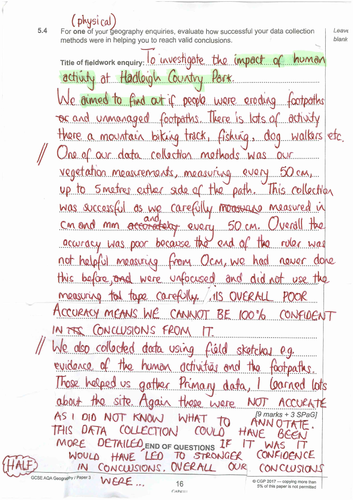 (physical)
5.4 For one of your geography enquiries, evaluate how successful your data collection
methods were in helping you to reach valid conclusions.
Leave
blank
Title of fieldwork enquiry: To investigate the impact of human
activity at Hadleigh Country Park.
We aimed to find out if people were eroding footpaths
or and unmanaged footpaths. There is lots of activity
there a mountain biking track, fishing, dog walkers etc.
// One of our data collection methods was our
vegetation measurements, measuring every 50 cm,
up to 5 metres either side of the path. This collection
was successful as we carefully measure measured in
cm and mm accurately and every 50 cm. Overall the
accuracy was poor because the end of the ruler was
not helpful measuring from 0cm, we had never done
this before, and were unfocused and did not use the
measuring tal tape carefully. THIS OVERALL POOR
ACCURACY MEANS WE CANNOT BE 100% CONFIDENT
IN ITS CONCLUSIONS FROM IT.
// We also collected data using field sketches e.g.
evidence of the human activities and the footpaths.
Those helped us gather Primary data, I learned lots
about the site. Again there were NOT ACCURATE
AS I DID NOT KNOW WHAT TO ANNOTATE.
[9 marks + 3 SPaG]
THIS DATA COLLECTION COULD HAVE BEEN
MORE DETAILED. END OF QUESTIONS IF IT WAS IT
WOULD HAVE LED TO STRONGER CONFIDENCE
HALF IN CONCLUSIONS. OVERALL OUR CONCLUSIONS
WERE ...
GCSE AQA Geography / Paper 3
16
© CGP 2017 — copying more than
5% of this paper is not permitted